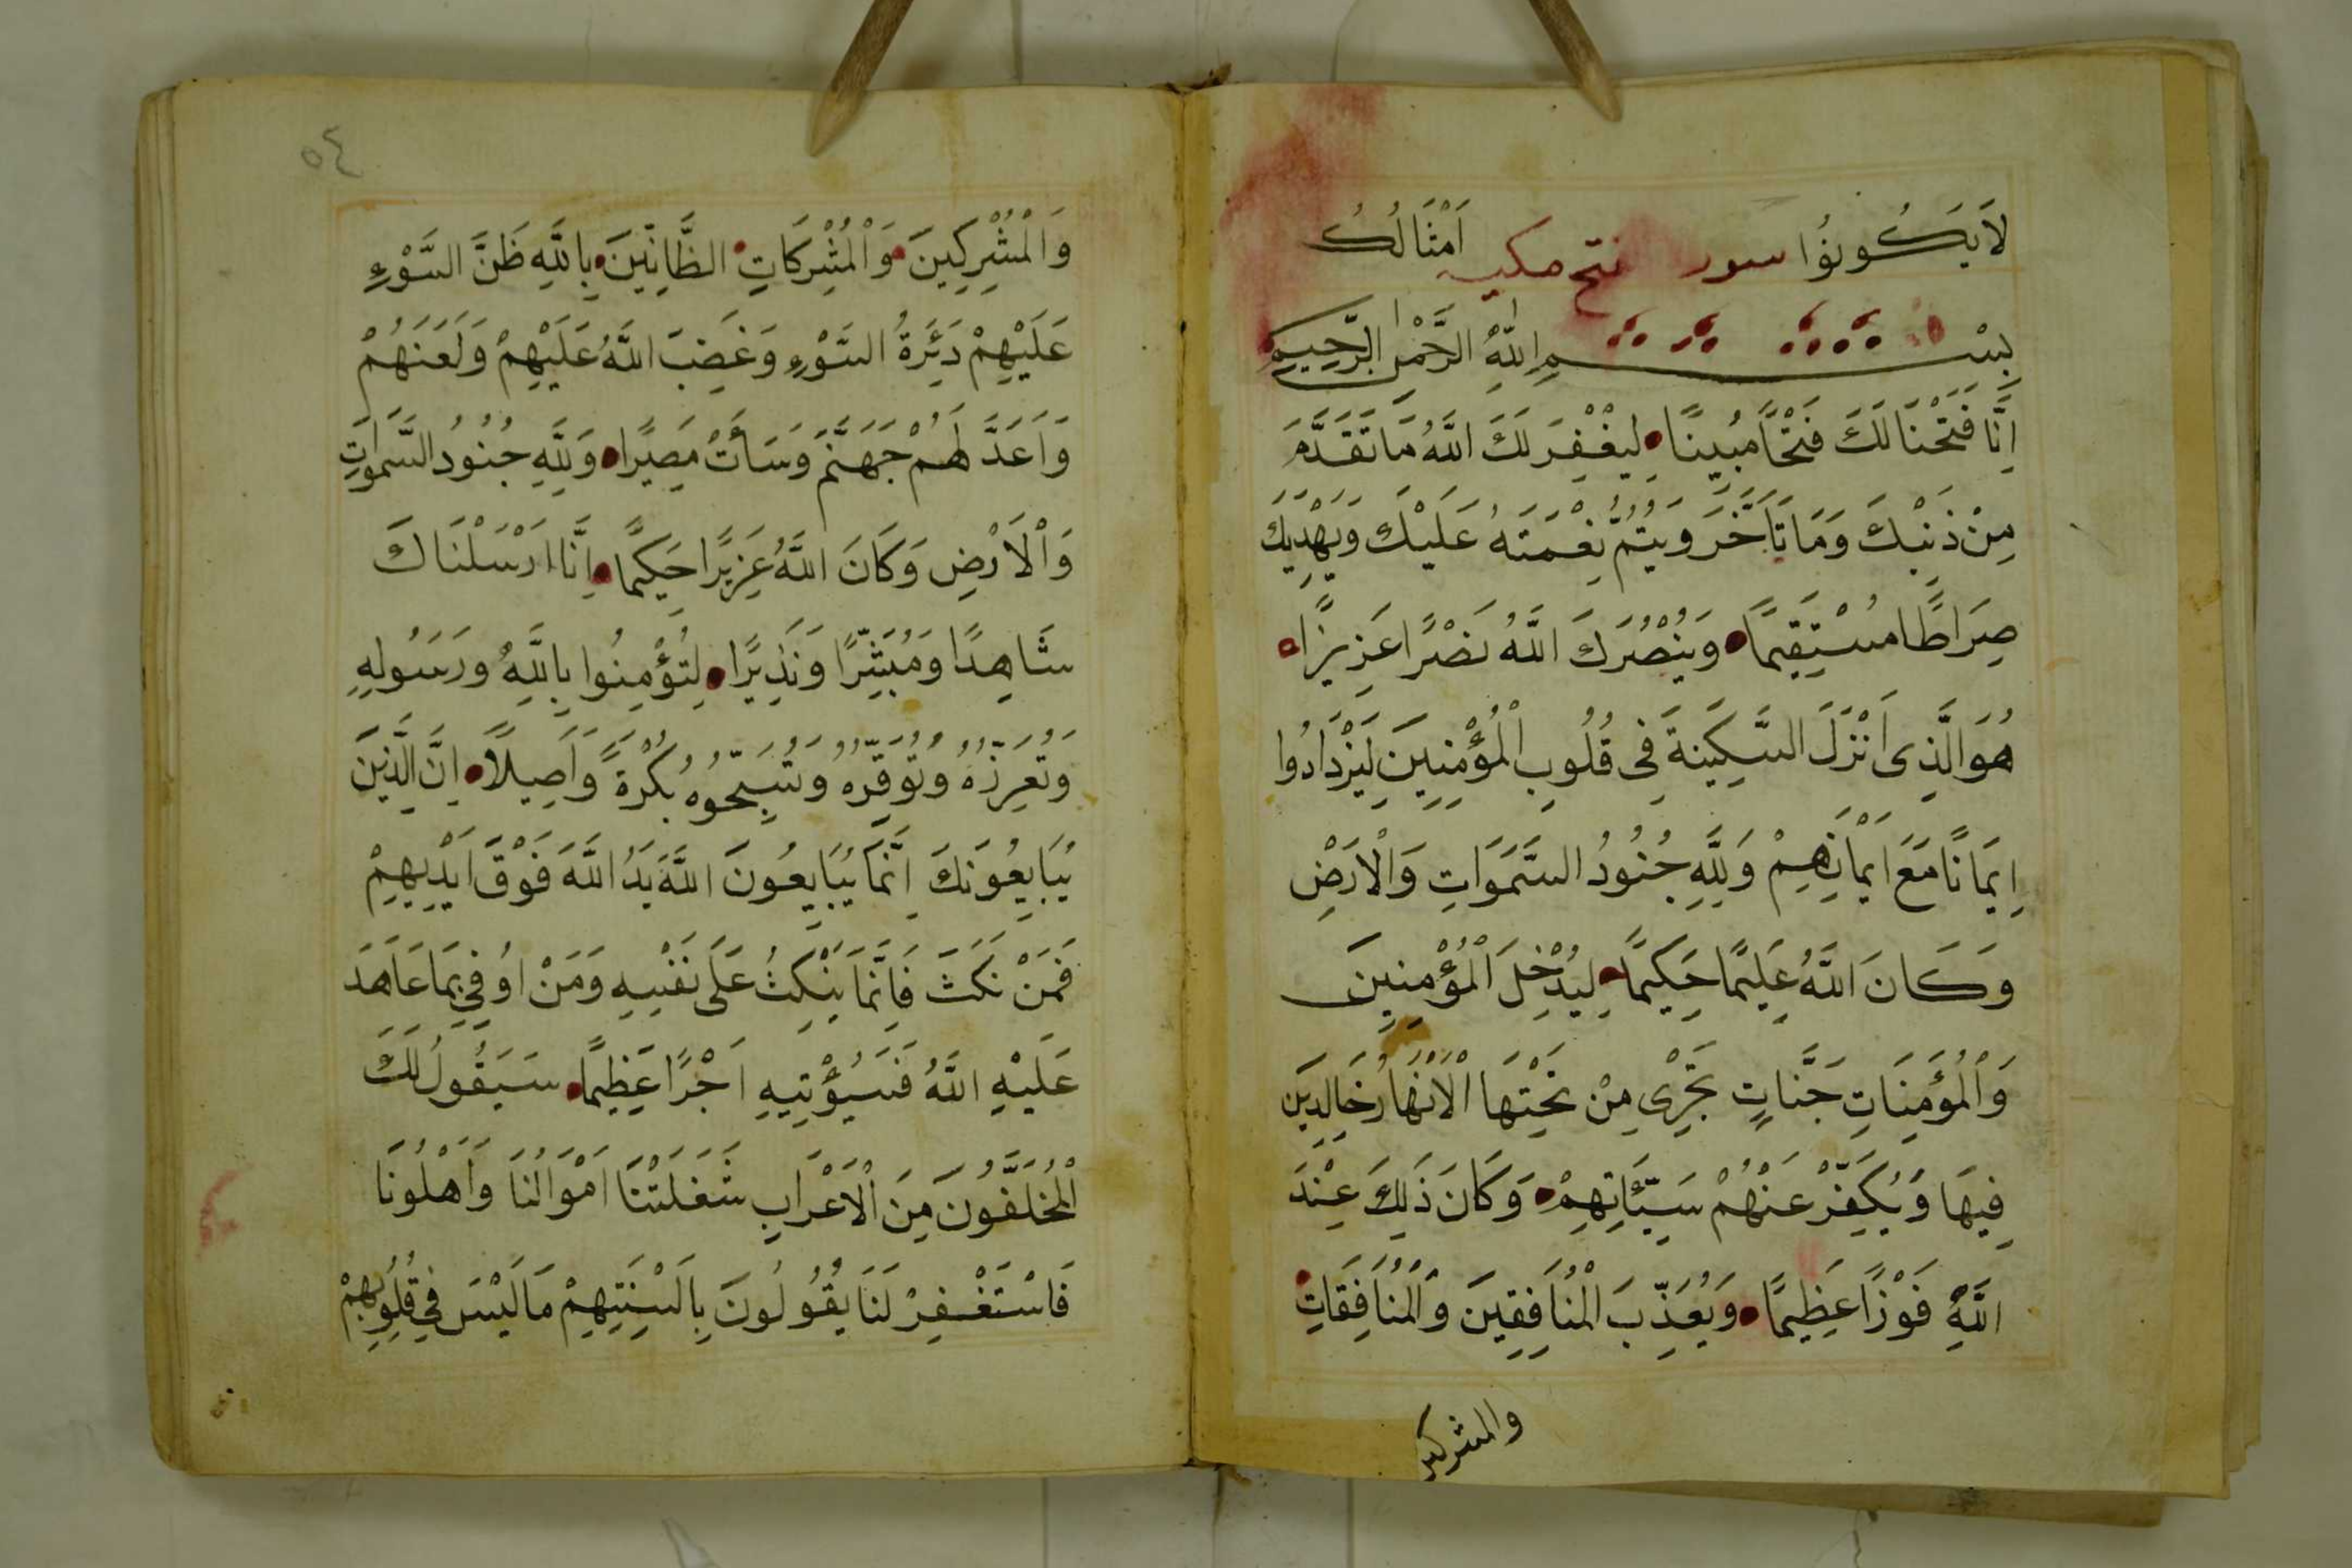 لَا يَكُونُوُا سور فتح مكيه اَمْثَالُكُ
بِسْمِ اللّٰهِ الرَّحْمٰنِ الرَّحِيمِ
اِنَّا فَتَحْنَا لَكَ فَتْحًا مُبِينًا لِيَغْفِرَ لَكَ اللَّهُ مَا تَقَدَّمَ
مِنْ ذَنْبِكَ وَمَا تَاَخَّرَ وَيُتِمُّ نِعْمَتَهُ عَلَيْكَ وَيَهْدِيَكَ
صِرَاطًا مُسْتَقِيمًا وَيَنْصُرَكَ اللَّهُ نَصْرًا عَزِيزًا
هُوَ الَّذِى اَنْزَلَ السَّكِينَةَ فِى قُلُوبِ الْمُؤْمِنِينَ لِيَزْدَادُوا
اِيمَانًا مَعَ اِيمَانِهِمْ وَلِلَّهِ جُنُودُ السَّمَوَاتِ وَالْاَرْضِ
وَكَانَ اللَّهُ عَلِيمًا حَكِيمًا لِيُدْخِلَ الْمُؤْمِنِينَ
وَالْمُؤْمِنَاتِ جَنَّاتٍ تَجْرِى مِنْ تَحْتِهَا الْاَنْهَارُ خَالِدِينَ
فِيهَا وَيُكَفِّرْ عَنْهُمْ سَيِّئَاتِهِمْ وَكَانَ ذَلِكَ عِنْدَ
اللَّهِ فَوْزًا عَظِيمًا وَيُعَذِّبَ الْمُنَافِقِينَ وَالْمُنَافِقَاتِ
والمشركين
٥٤
وَالْمُشْرِكِينَ وَالْمُشْرِكَاتِ الظَّانِّينَ بِاللَّهِ ظَنَّ السَّوْءِ
عَلَيْهِمْ دَئِرَةُ السَّوْءِ وَغَضِبَ اللَّهُ عَلَيْهِمْ وَلَعَنَهُمْ
وَاَعَدَّ لَهُمْ جَهَنَّمَ وَسَأَتْ مَصِيرًا وَلِلَّهِ جُنُودُ السَّمٰوَاتِ
وَالْاَرْضِ وَكَانَ اللَّهُ عَزِيزًا حَكِيمًا اِنَّا اَرْسَلْنَاكَ
شَاهِدًا وَمُبَشِّرًا وَنَذِيرًا لِتُؤْمِنُوا بِاللَّهِ وَرَسُولِهِ
وَتُعَزِرُهُ وَتُوَقِّرُهُ وَتُسَبِّحُوهُ بُكْرَةً وَاَصِيلًا اِنَّ الَّذِينَ
يُبَايِعُونَكَ اِنَّمَا يُبَايِعُونَ اللَّهَ يَدُ اللَّهَ فَوْقَ اَيْدِيهِمْ
فَمَنْ نَكَثَ فَاِنَّمَا يَنْكِثُ عَلَى نَفْسِهِ وَمَنْ اوُفِي بِمَا عَاهَدَ
عَلَيْهِ اللَّهُ فَسَيُؤْتِيهِ اَجْرًا عَظِيمًا سَيَقُولُ لَكَ
الْمُخَلَّفُونَ مِنَ الْاَعْرَابِ شَغَلَتْنَا اَمْوَالُنَا وَاَهْلُونَا
فَاسْتَغْفِرْ لَنَا يَقُولُونَ بِاَلْسِنَتِهِمْ مَا لَيْسَ فِي قُلُوبِهِمْ